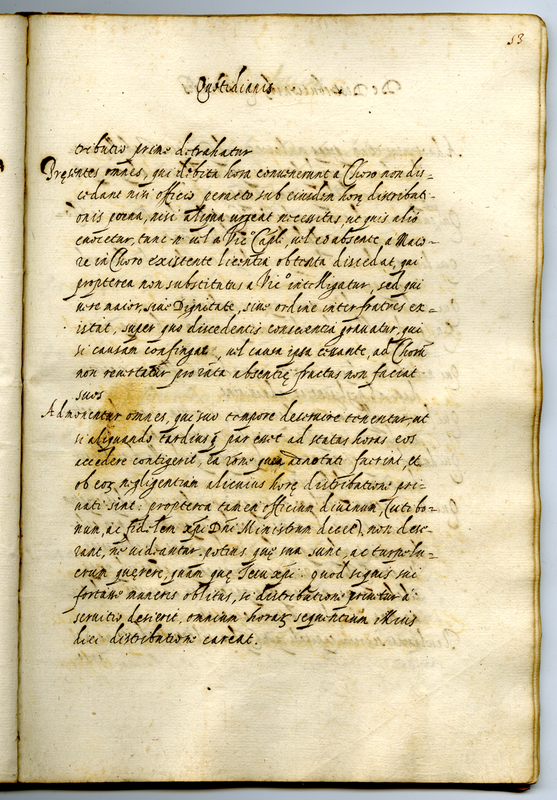 53
Quotidianis
tributio prine detrahatur
Pręsentes omnes, qui debita hora convenerint a Choro non dis=
cedant nisi officio peracto sub eiusdem horę distributi=
onis poena, nisi aliqua urgeat necessitas, ut quis alió
evocetur, tunc n. vel a Vic.º Capli, vel eo absente, a Maio=
re in Choro existente licentia obtenta discedat, qui
propterea non substitutus a Vic.º intelligatur, sed qui
vere maior, sive Dignitate, sive ordine inter fratres ex=
istat, super quo discedentis conscientia gravatur, qui
si causam confingat, vel causa ipsa cessante, ad Chorũ
non revertatur pro rata absentię fructus non faciat
suos
Admonentur omnes, qui suo tempore deservire tenentur, ut
si aliquando tardiusq́ par esset ad statas horas eos
accedere contigerit, ea rõne adnotati fuerint, et
ob eoꝝ negligentiam alicuius horę distributione pri=
vati sint: propterea tamen officium divinum, (uti bo=
num, ac fidelem xp̃i Dñi Ministrum decet), non dese=
rant, ne videantur potius quę sua sunt, ac turpe lu=
crum quęrere, quam quę Jesu xp̃i: quod siquis sui
fortasse muneris oblitus, si distributione privetur á
servitio desierit, omnium horaꝝ sequentium illius
diei distributione careat.